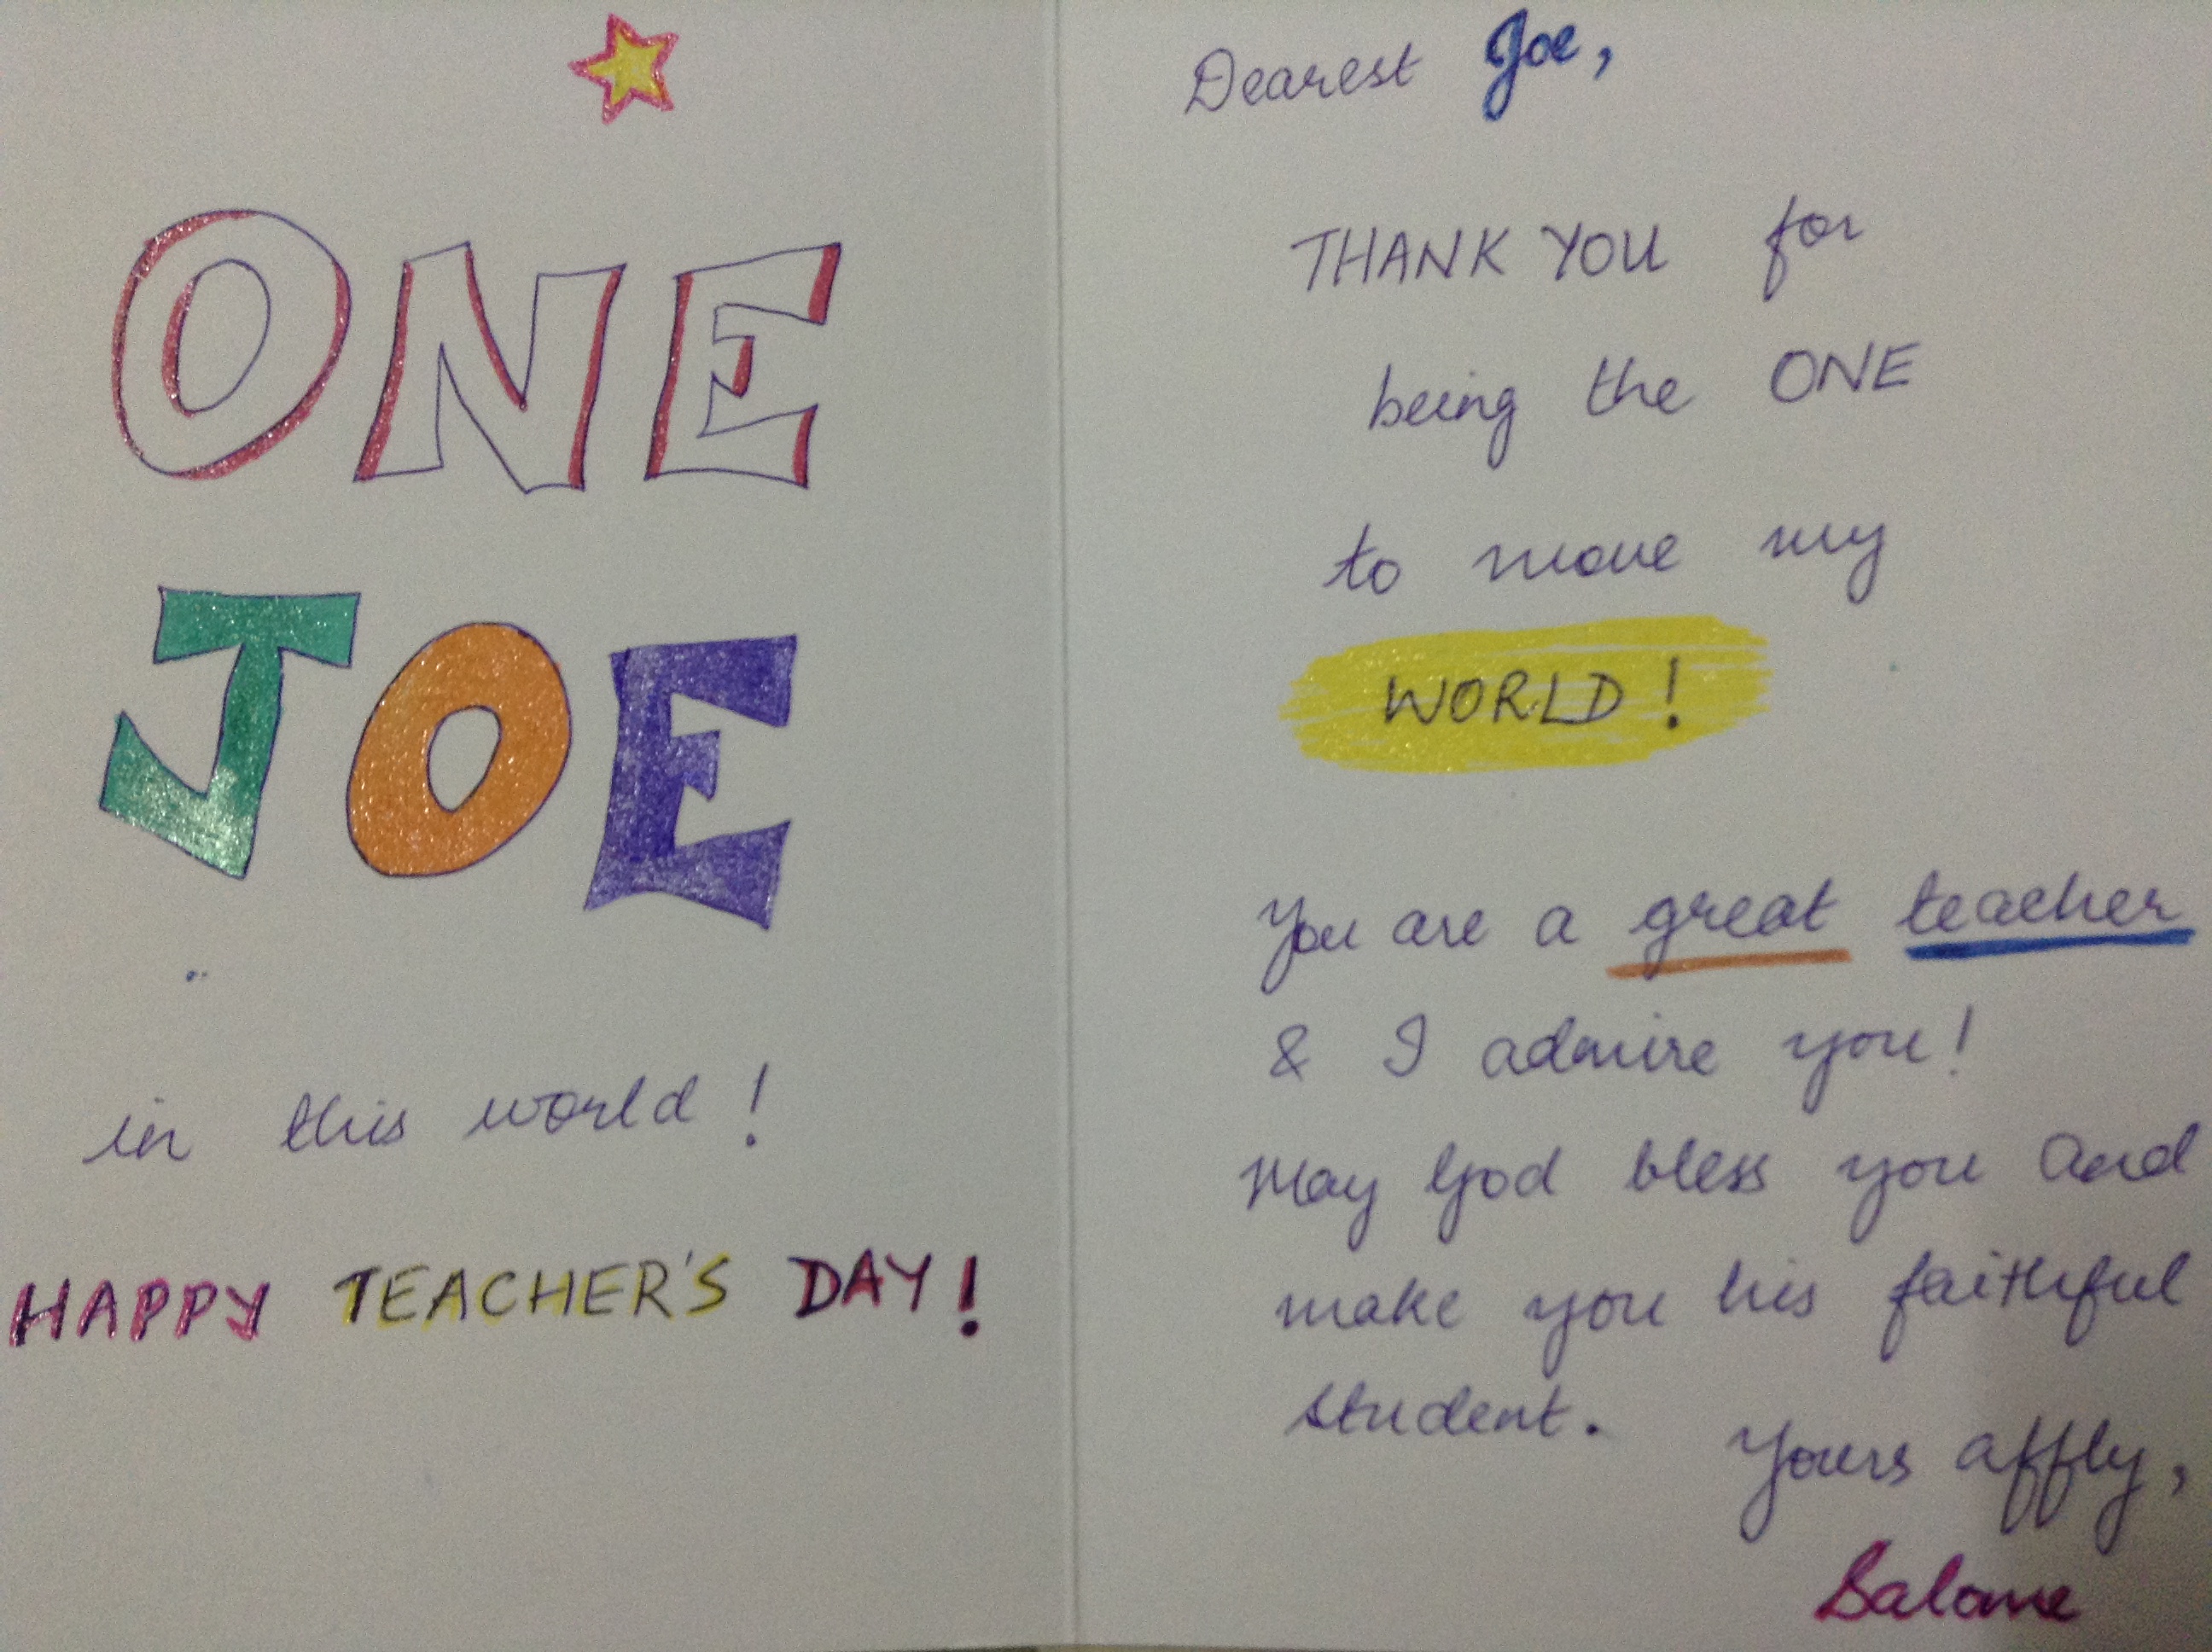 ONE
JOE
in this world!
HAPPY TEACHER'S DAY!
Dearest Joe,
THANK YOU for
being the ONE
to move my
WORLD!
You are a great teacher
& I admire you!
May God bless you and
make you his faithful
student.
Yours affly,
Salome